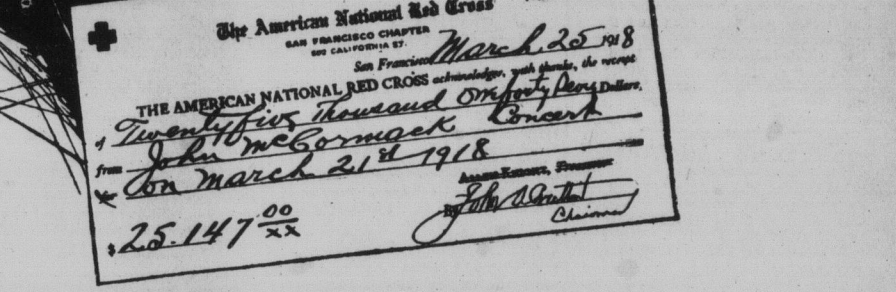 The American National Red Cross
SAN FRANCISCO CHAPTER
502 CALIFORNIA ST.
San Francisco March 25 1918
THE AMERICAN NATIONAL RED CROSS acknowledges, with thanks, the receipt
of Twenty five Thousand One forty Seven Dollars,
from John McCormack Concert
on March 21st 1918
Treasurer
$25.147 00/xx
By John
Chairman